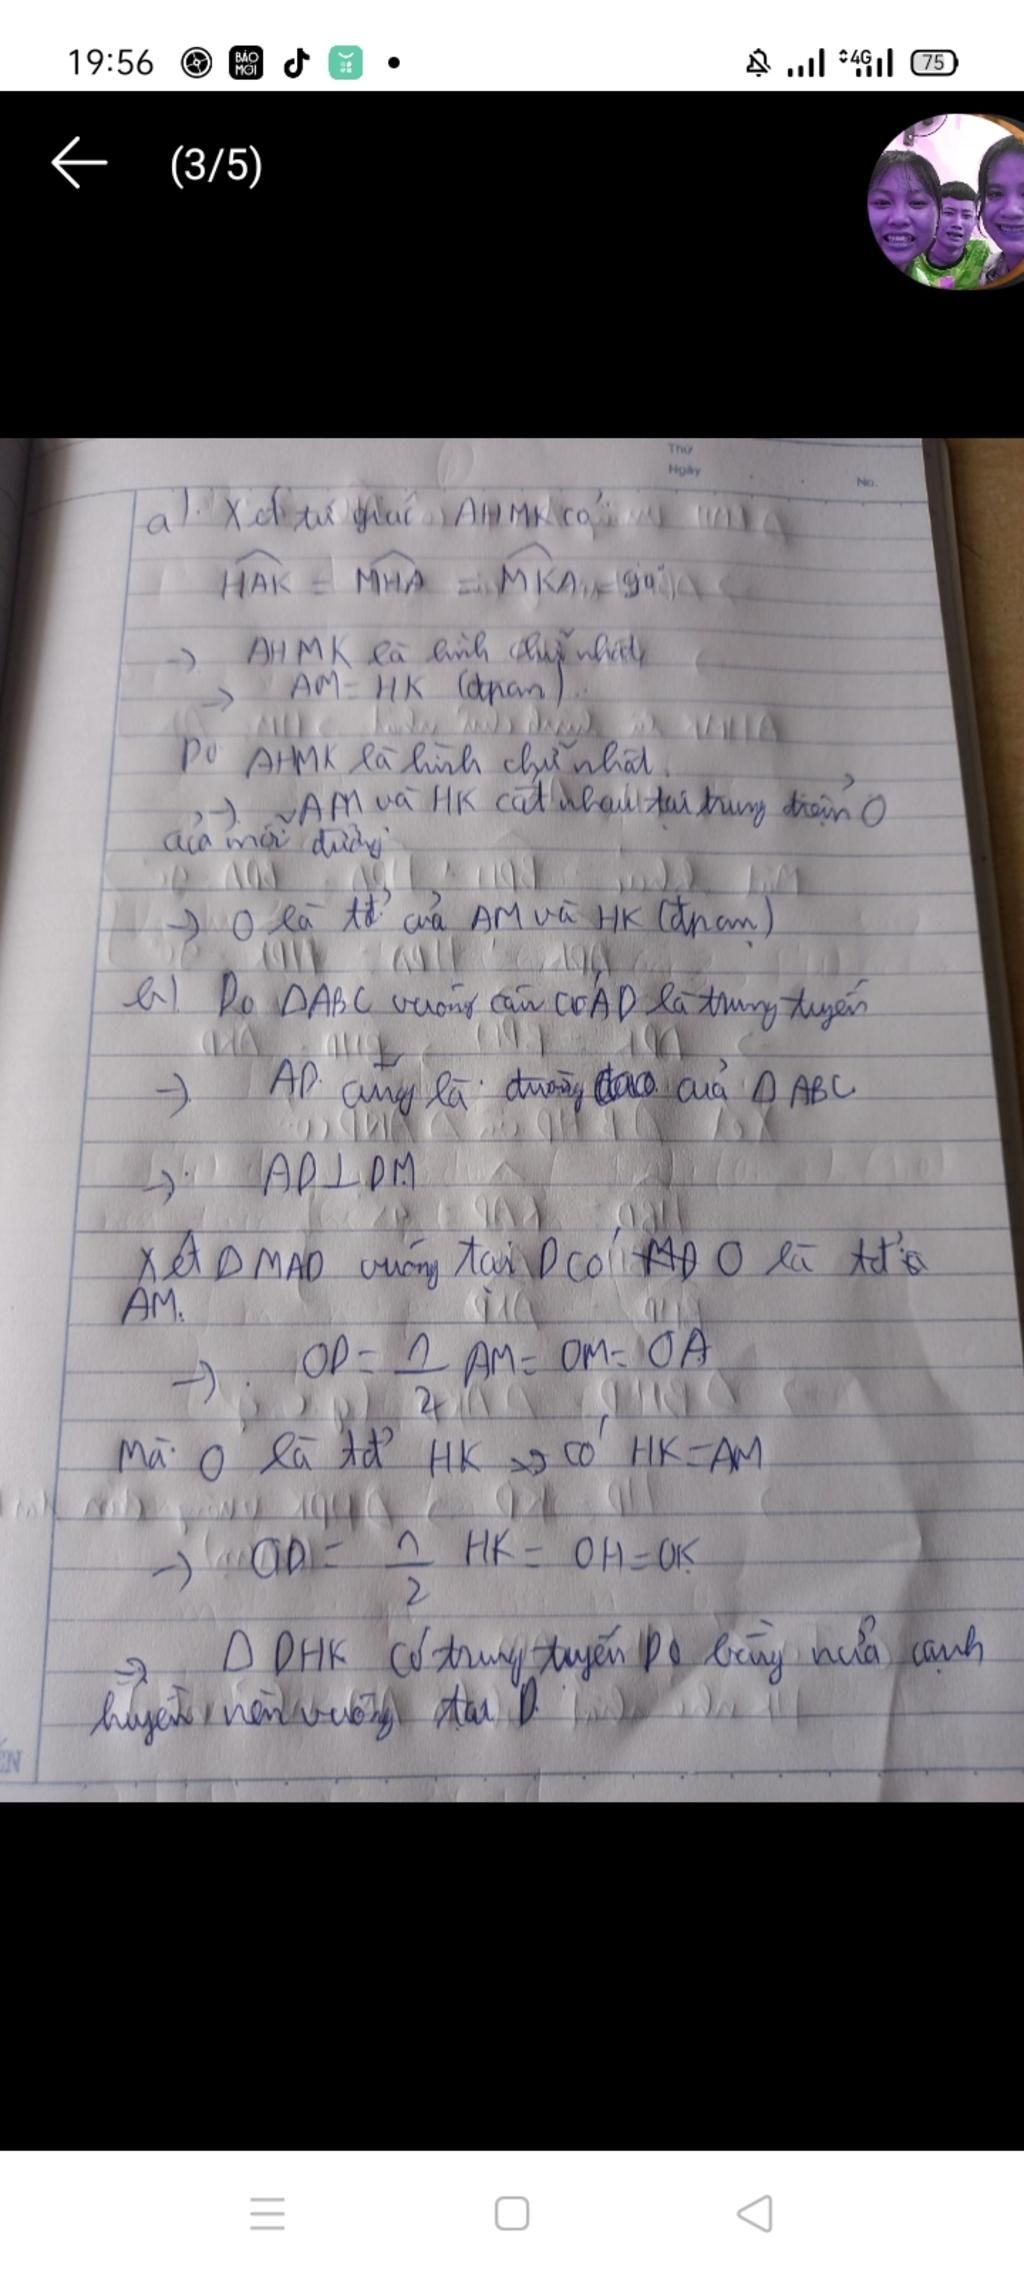 19:56
BÁO MỚI
4G
75
(3/5)
Thứ
Ngày
No.
a). Xét tứ giác AHMK có
HAK = MHA = MKA = 90°
→ AHMK là hình chữ nhật
→ AM = HK (đpcm).
Do AHMK là hình chữ nhật.
→ AM và HK cắt nhau tại trung điểm O
của mỗi đường
→ O là tđ của AM và HK (đpcm)
b) Do ΔABC vuông cân có AD là trung tuyến
→ AD cũng là đường cao của Δ ABC
→ AD⊥DM
Xét Δ MAD vuông tại D có O là tđ
AM.
→ OD = 1/2 AM = OM = OA
Mà O là tđ HK có HK = AM
→ OD = 1/2 HK = OH = OK
⇒ Δ DHK có trung tuyến DO bằng nửa cạnh
huyền nên vuông tại D.